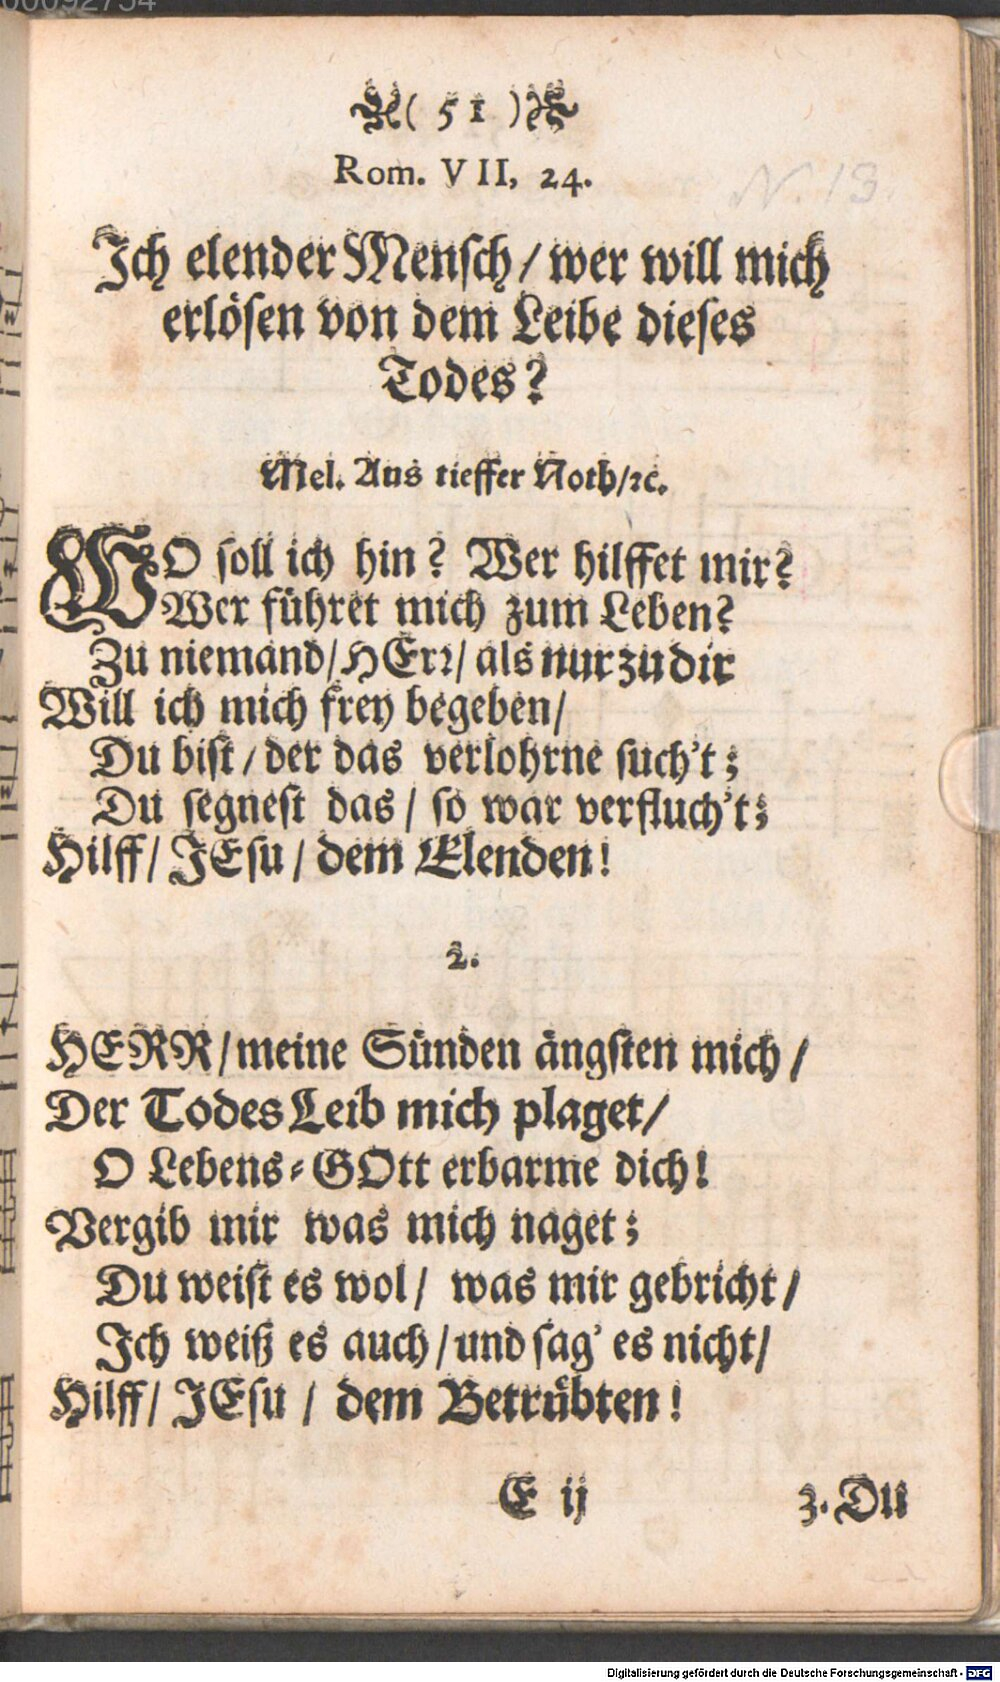 00092754
( 51 )
Rom. VII, 24.
N. 13.
Ich elender Mensch / wer will mich
erlösen von dem Leibe dieses
Todes?
Mel. Aus tieffer Noth/ ꝛc.
WO soll ich hin? Wer hilffet mir?
Wer führet mich zum Leben?
Zu niemand/ HErr/ als nur zu dir
Will ich mich frey begeben/
Du bist / der das verlohrne such't;
Du segnest das / so war verfluch't;
Hilff/ JEsu / dem Elenden!
2.
HERR/ meine Sünden ängsten mich /
Der Todes Leib mich plaget/
O Lebens-GOtt erbarme dich!
Vergib mir was mich naget;
Du weist es wol/ was mir gebricht /
Ich weiß es auch / und sag' es nicht/
Hilff/ JEsu / dem Betrübten!
E ij 3. Du
Digitalisierung gefördert durch die Deutsche Forschungsgemeinschaft - DFG